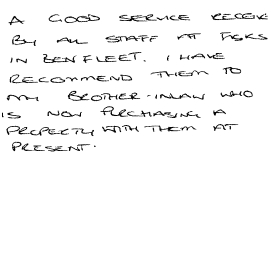 A GOOD SERVICE RECEIV
BY ALL STAFF AT FISKS
IN BENFLEET. I HAVE
RECOMMEND THEM TO
MY BROTHER-INLAW WHO
IS NOW PURCHASING A
PROPERTY WITH THEM AT
PRESENT.